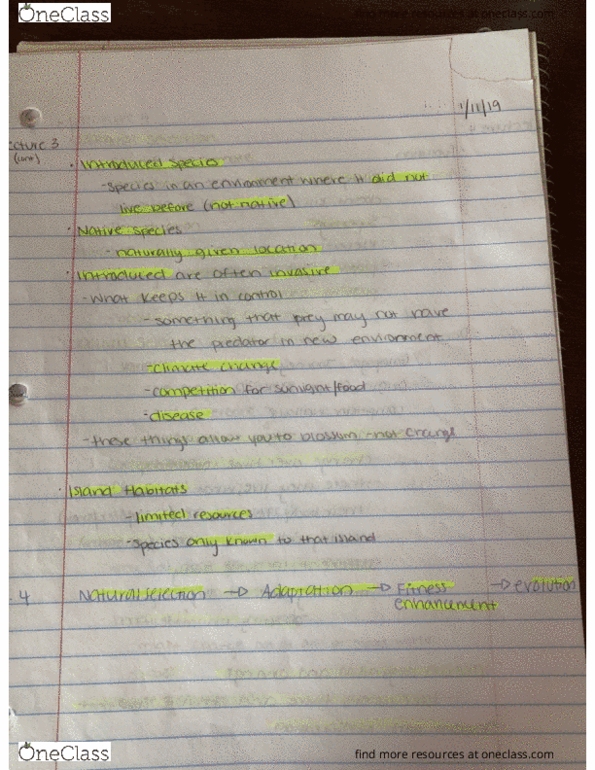 OneClass
find more resources at oneclass.com
1/11/19
cture 3
(cont)
· Introduced Species
-Species in an environment where it did not
live before (not native)
· Native Species
- naturally given location
· Introduced are often invasive
- What keeps it in control
- something that prey may not have
the predator in new environment
-climate change
-competition for sunlight/food
-disease
-these things allow you to blossom not change
· Island Habitats
-limited resources
-Species only known to that island
. 4 Natural selection → Adaptation → Fitness → evolution
enhancement
OneClass
find more resources at oneclass.com